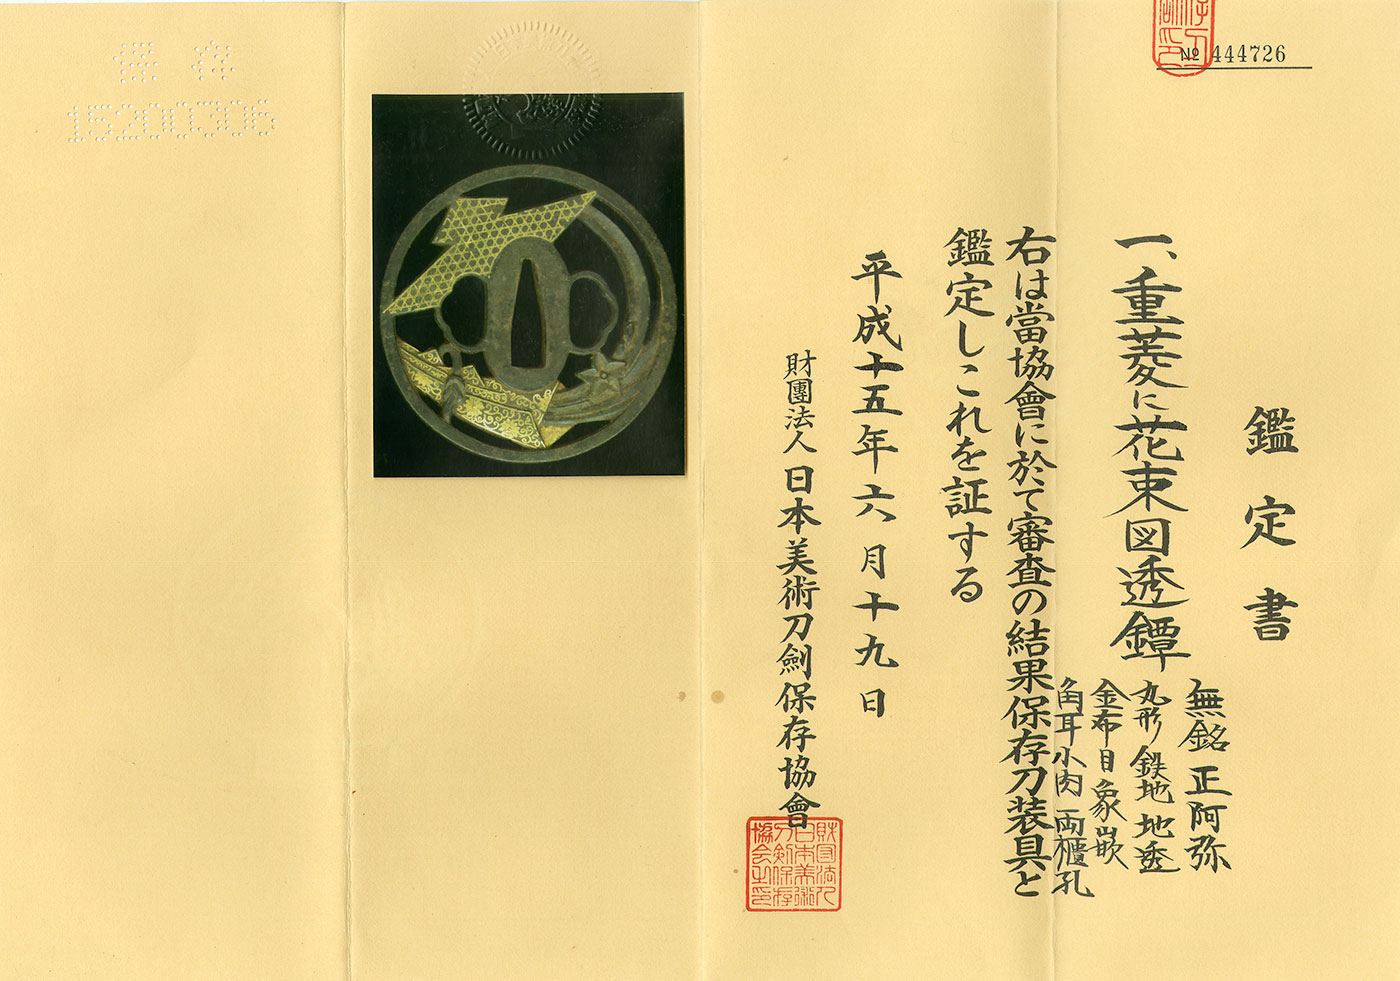 № 444726
鑑定書
一、重菱に花束図透鐔
無銘 正阿弥
丸形 鉄地 地透
金布目象嵌
角耳小肉 両櫃孔
右は當協會に於て審査の結果保存刀装具と
鑑定しこれを証する
平成十五年六月十九日
財團法人 日本美術刀劍保存協會
財団法人
日本美術
刀剣保存
協会之印
保存
15200306